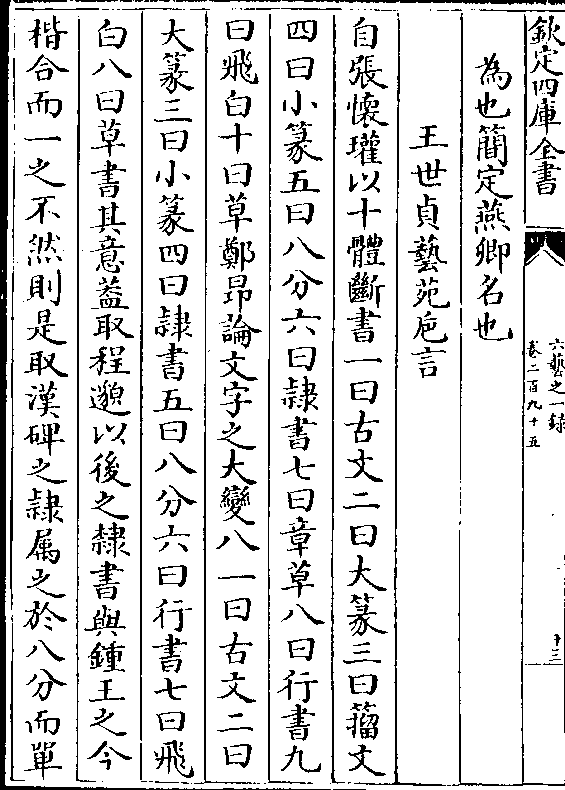 欽定四庫全書
六藝之一録
卷二百九十五
十三
為也簡定燕卿名也
王世貞藝苑巵言
自張懷瓘以十體斷書一曰古文二曰大篆三曰籀文
四曰小篆五曰八分六曰隷書七曰章草八曰行書九
曰飛白十曰草鄭昻論文字之大變八一曰古文二曰
大篆三曰小篆四曰隷書五曰八分六曰行書七曰飛
白八曰草書其意葢取程邈以後之隷書與鍾王之今
楷合而一之不然則是取漢碑之隷属之於八分而單